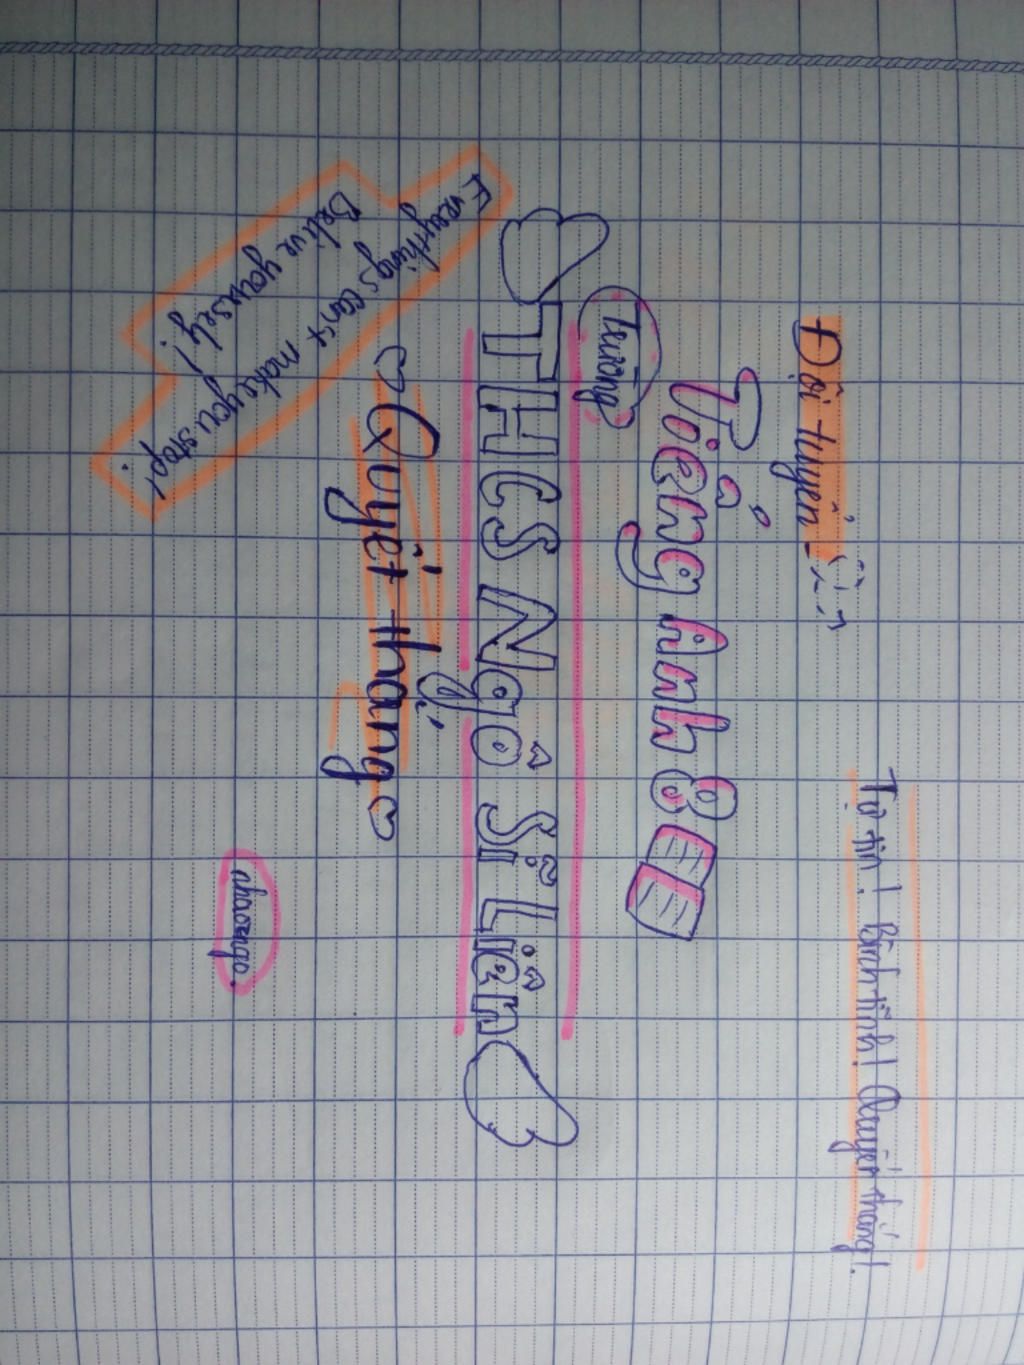 Tự tin! Bình tĩnh! Quyết thắng!
Đội tuyển
Tiếng Anh 8
Trường
THCS Ngô Sĩ Liên
Quyết thắng
Everythings can't make you stop!
Belive yourself!